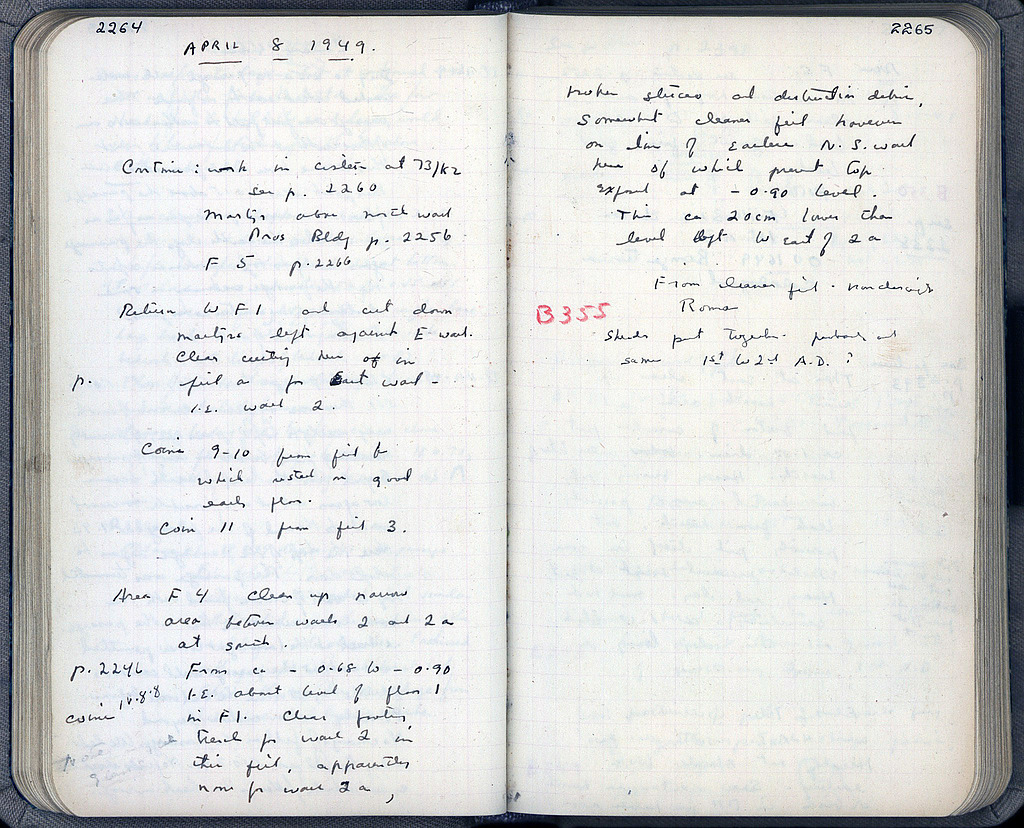 2264
APRIL 8 1949.
Continue: work in cistern at 73/KZ
see p. 2260
Martys above north wall
Bldg p. 2256
F 5 p. 2266
Return to F 1 and cut down
martyrs left against E-wall.
Clear cutting here of in
p. fill a for East wall -
I.E. wall 2.
Coins 9-10 from fill b
which rested on good
earth floor.
Coin 11 from fill 3.
Area F 4 Clear up narrow
area between walls 2 and 2a
at south.
p. 2246 From ca - 0.68 to - 0.90
coins IV.8.8 I.E. about level of floor 1
in F 1. Clear footing
trench for wall 2 in
this fill, apparently
none for wall 2a,
2265
broken stucco and destruction debris,
somewhat cleaner fill however
on line of Earlier N.S. wall
here of which present top
exposed at - 0.90 level.
This ca 20cm lower than
level left to East of 2a
From cleaner fill - nondescript
Roman
B355
sherds put together perhaps all
same 1st to 2nd A.D. ?